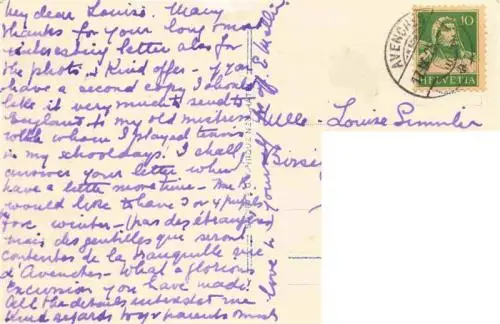 My dear Louise. Many
thanks for your long and
interesting letter also for
the photo & kind offer - If you
have a second copy I should
like it very much to send to
England to my old mistress
with whom I played tennis
in my schooldays. I shall
answer your letter when
have a little more time - Me R.
would like to have 3 or 4 pupils
for winter - (pas des étrangères)
mais des gentilles qui seront
contentes de la tranquille vie
d'Avenches - What a glorious
excursion you have made!
All the details interested me
Kind regards to yr parents much
love to yourself
Mlle. Louise Simmler
AVENCHES
10
HELVETIA